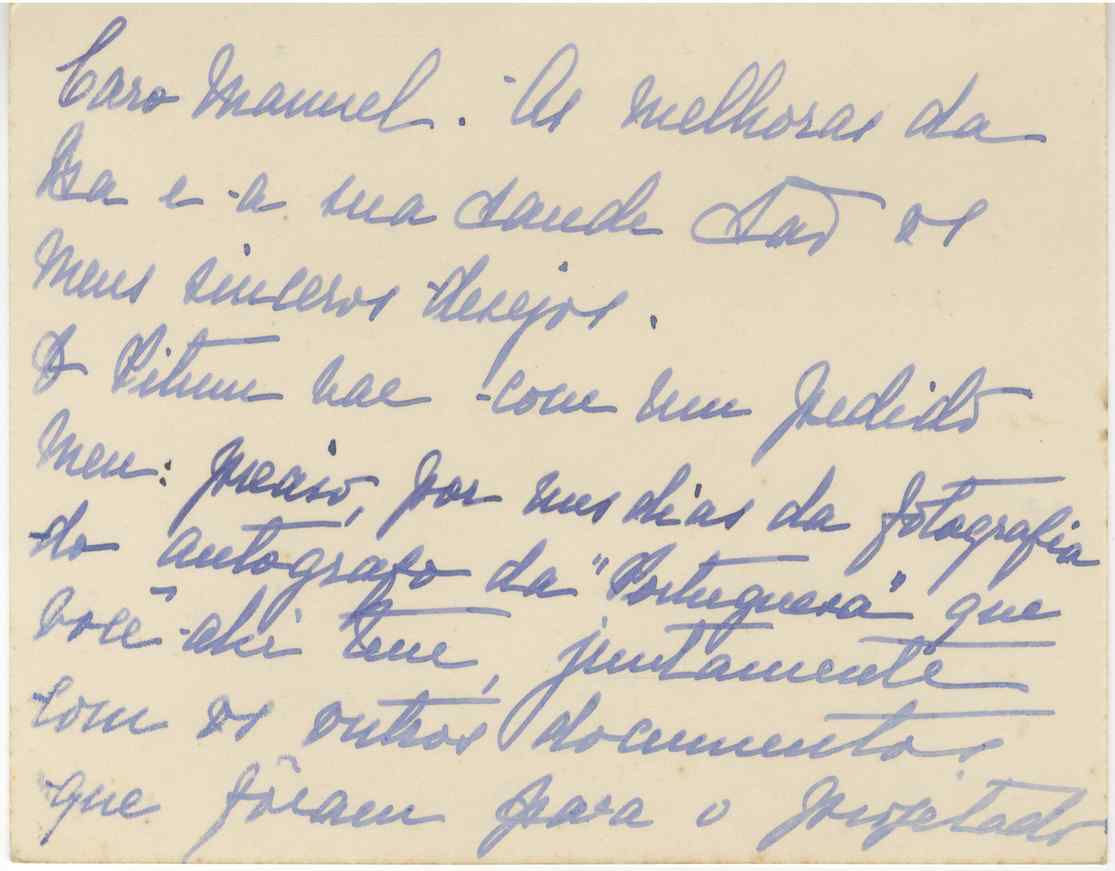 Caro Manuel. As melhoras da
Isa e a sua saude são os
meus sinceros desejos.
O Pitum vae com um pedido
meu: preciso, por uns dias da fotografia
do autografo da "Portuguesa" que
você ahi tem, juntamente
com os outros documentos
que fôram para o projetado